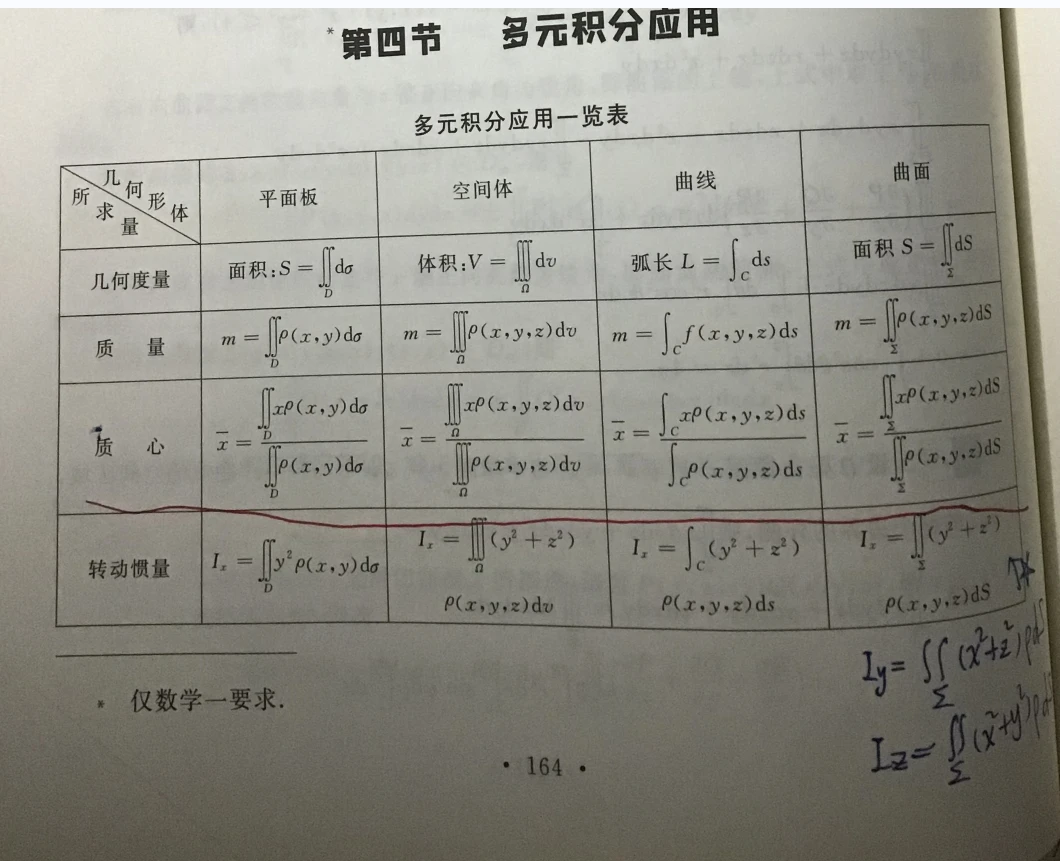 *第四节 多元积分应用
多元积分应用一览表
几何形体 所求量 平面板 空间体 曲线 曲面
几何度量 面积:S = ∬_D dσ 体积:V = ∭_Ω dv 弧长 L = ∫_C ds 面积 S = ∬_Σ dS
质 量 m = ∬_D ρ(x,y)dσ m = ∭_Ω ρ(x,y,z)dv m = ∫_C f(x,y,z)ds m = ∬_Σ ρ(x,y,z)dS
质 心 x̄ = ∬_D xρ(x,y)dσ / ∬_D ρ(x,y)dσ x̄ = ∭_Ω xρ(x,y,z)dv / ∭_Ω ρ(x,y,z)dv x̄ = ∫_C xρ(x,y,z)ds / ∫_C ρ(x,y,z)ds x̄ = ∬_Σ xρ(x,y,z)dS / ∬_Σ ρ(x,y,z)dS
转动惯量 I_x = ∬_D y²ρ(x,y)dσ I_x = ∭_Ω (y² + z²) ρ(x,y,z)dv I_x = ∫_C (y² + z²) ρ(x,y,z)ds I_x = ∬_Σ (y² + z²) ρ(x,y,z)dS
Iy = ∬_Σ (x²+z²)ρd
Iz = ∬_Σ (x²+y²)ρd
* 仅数学一要求.
· 164 ·